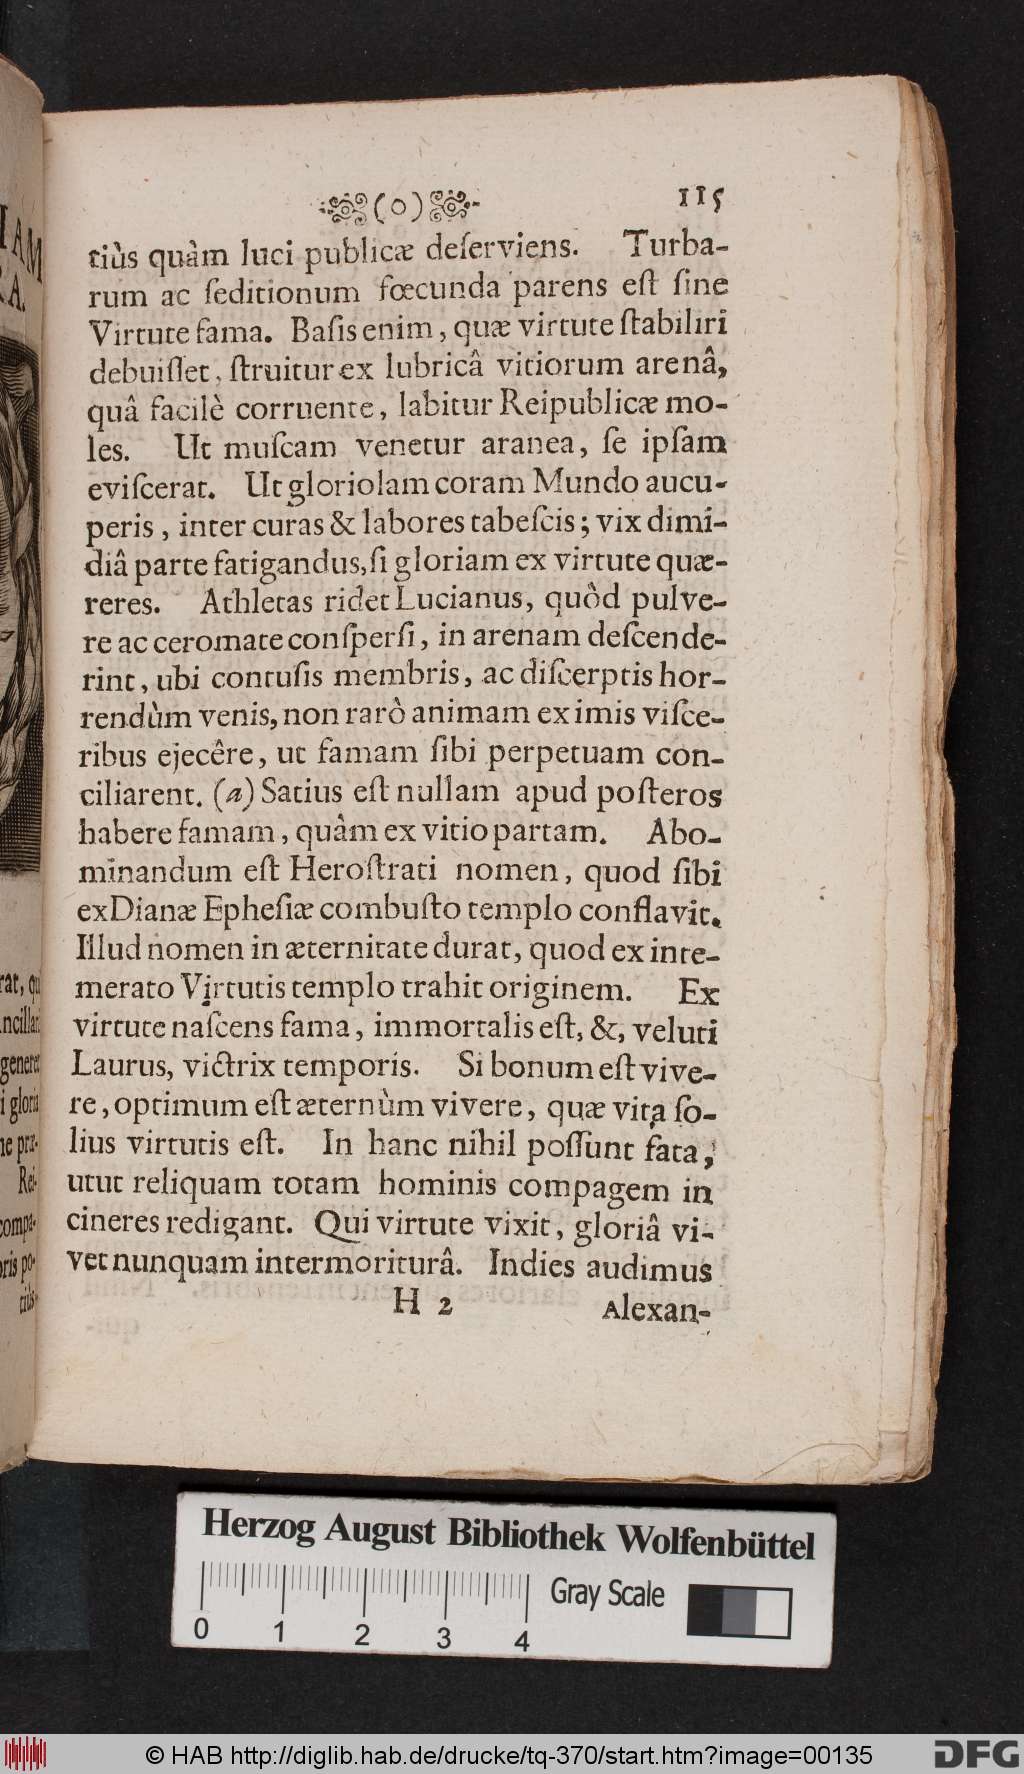 (o) 115
tiùs quàm luci publicæ deſerviens. Turba-
rum ac ſeditionum fœcunda parens eſt ſine
Virtute fama. Baſis enim, quæ virtute ſtabiliri
debuiſſet, ſtruitur ex lubricâ vitiorum arenâ,
quâ facilè corruente, labitur Reipublicæ mo-
les. Ut muſcam venetur aranea, ſe ipſam
eviſcerat. Ut gloriolam coram Mundo aucu-
peris, inter curas & labores tabeſcis; vix dimi-
diâ parte fatigandus, ſi gloriam ex virtute quæ-
reres. Athletas ridet Lucianus, quòd pulve-
re ac ceromate conſperſi, in arenam deſcende-
rint, ubi contuſis membris, ac diſcerptis hor-
rendùm venis, non rarò animam ex imis viſce-
ribus ejecêre, ut famam ſibi perpetuam con-
ciliarent. (a) Satius eſt nullam apud poſteros
habere famam, quàm ex vitio partam. Abo-
minandum eſt Heroſtrati nomen, quod ſibi
ex Dianæ Epheſiæ combuſto templo conflavit.
Illud nomen in æternitate durat, quod ex inte-
merato Virtutis templo trahit originem. Ex
virtute naſcens fama, immortalis eſt, &, veluti
Laurus, victrix temporis. Si bonum eſt vive-
re, optimum eſt æternùm vivere, quæ vita ſo-
lius virtutis eſt. In hanc nihil poſſunt fata,
utut reliquam totam hominis compagem in
cineres redigant. Qui virtute vixit, gloriâ vi-
vet nunquam intermoriturâ. Indies audimus
H 2 Alexan-
IAM
A.
rat, qu
ncillari
generet
i gloria
ne præ-
Rei-
compa-
oris po-
tiùs
Herzog August Bibliothek Wolfenbüttel
Gray Scale
0 1 2 3 4
© HAB http://diglib.hab.de/drucke/tq-370/start.htm?image=00135
DFG